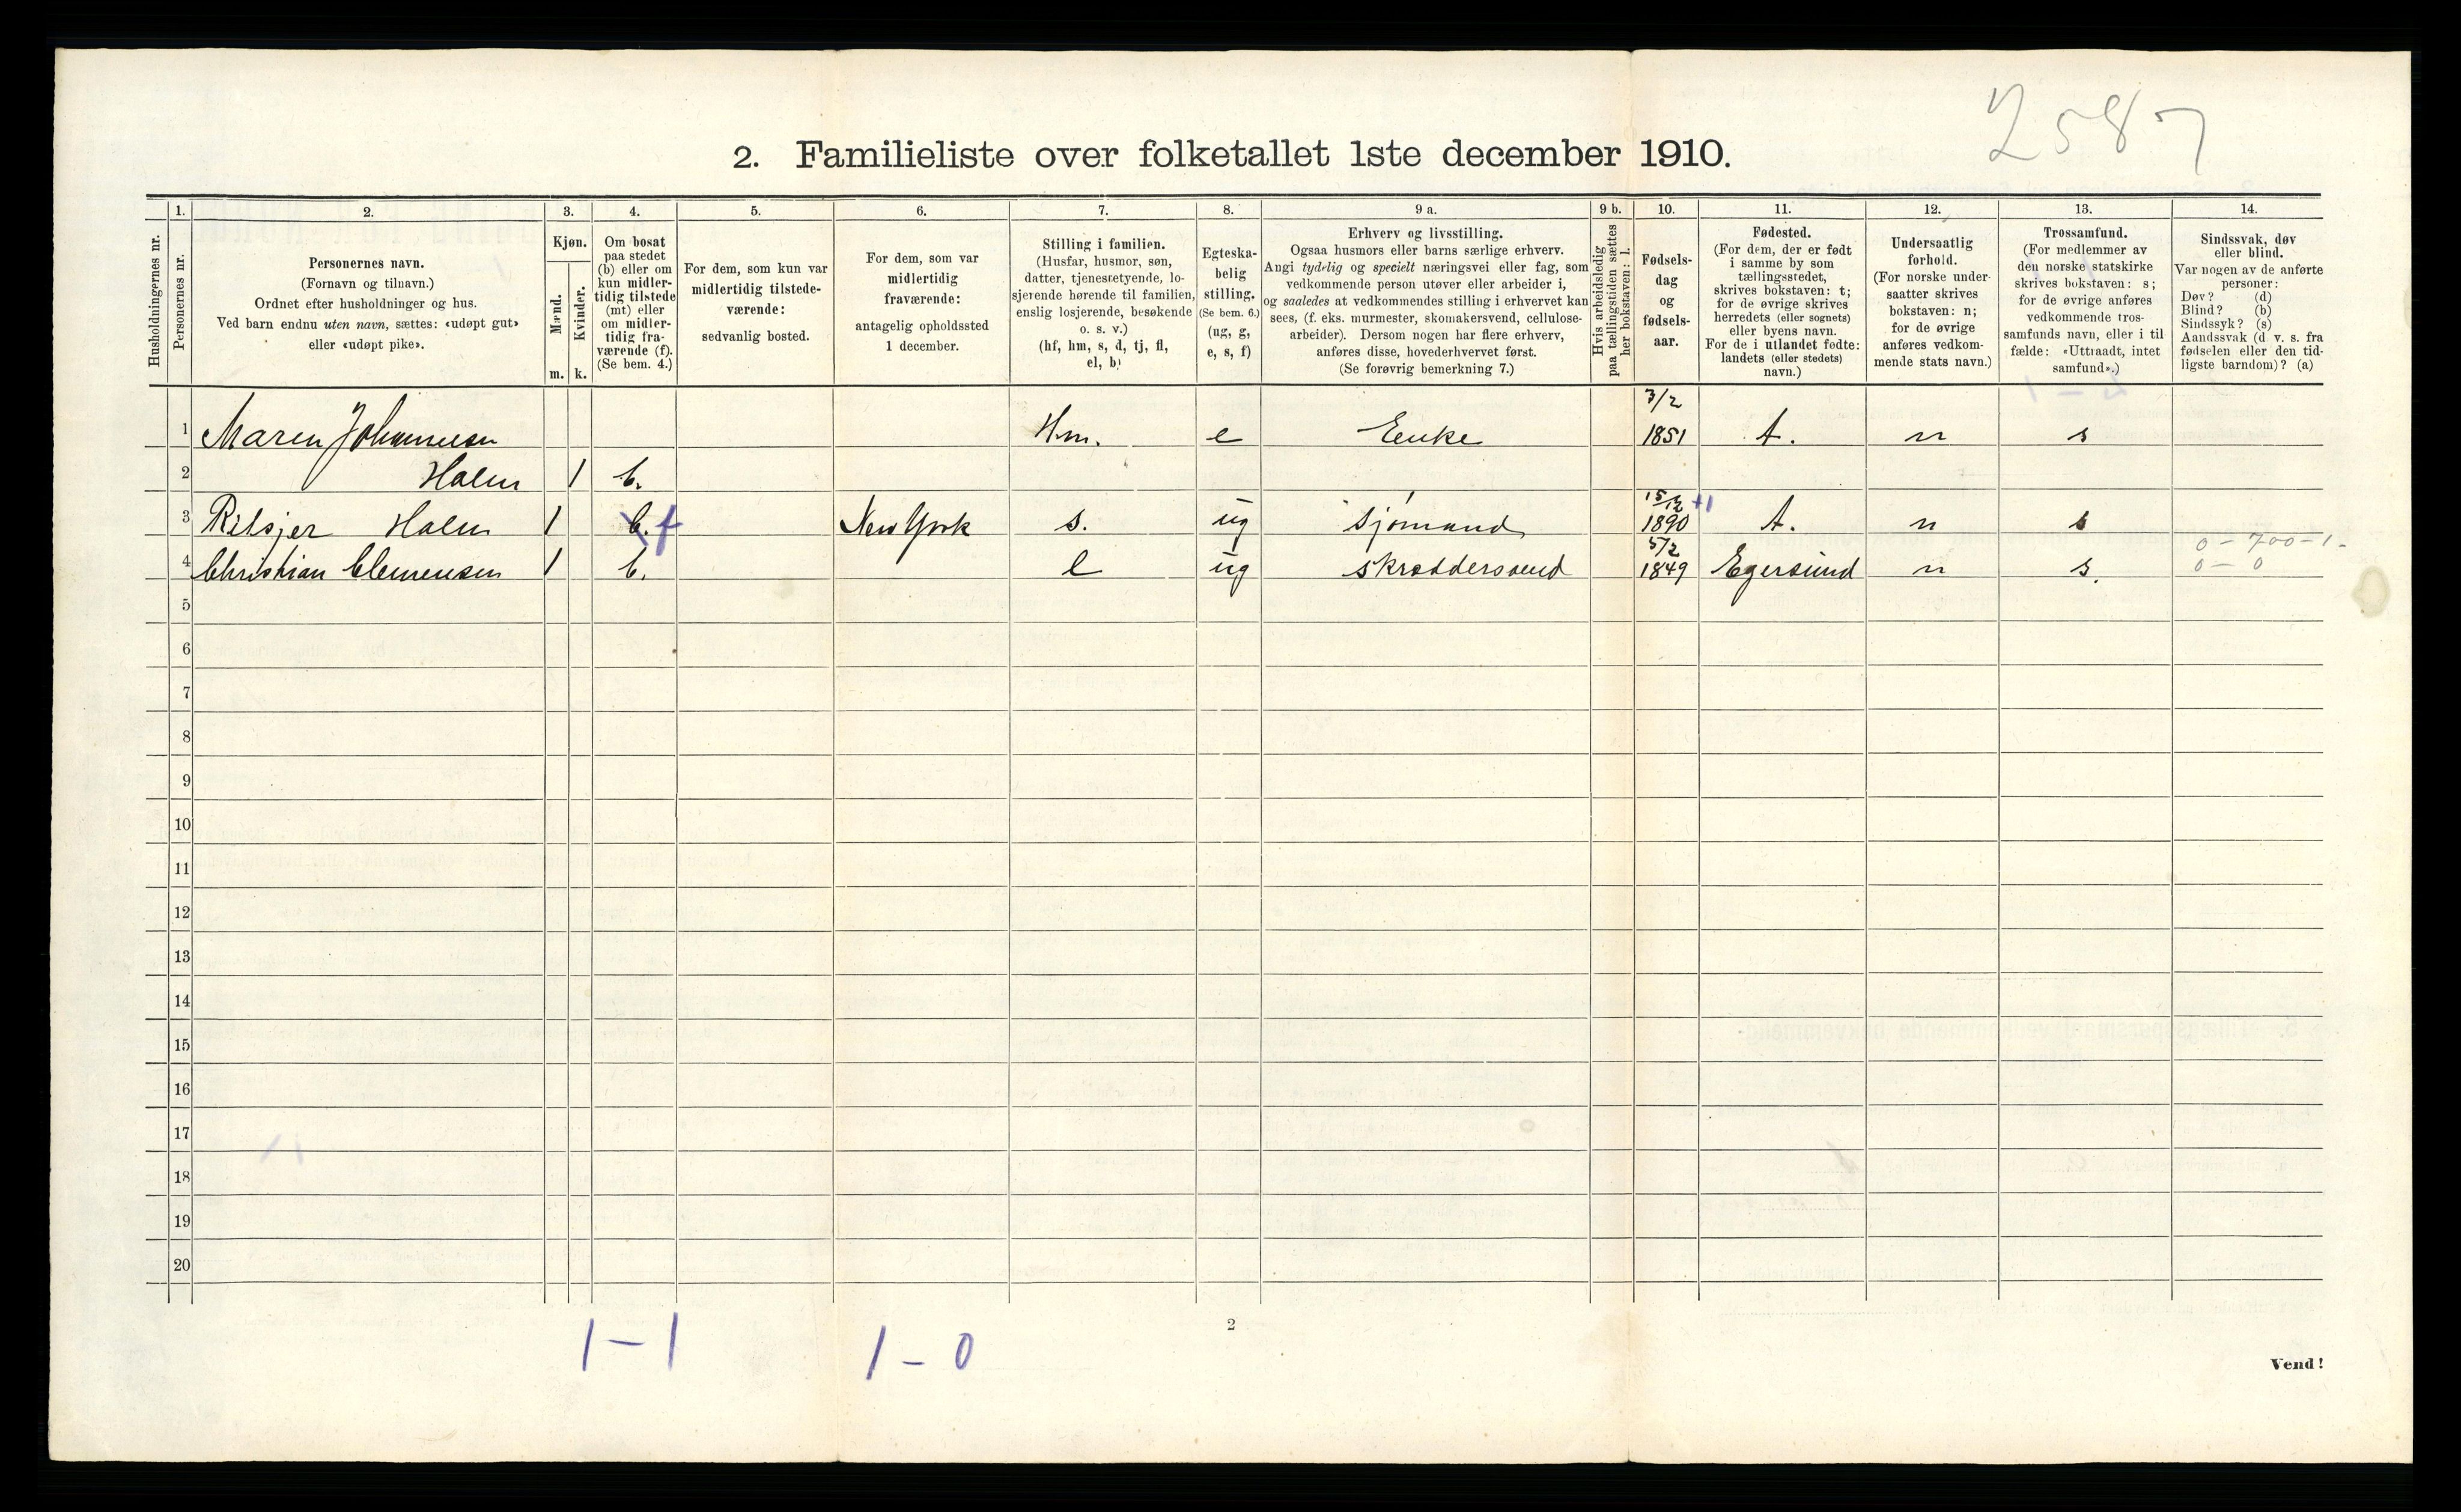 2587
2. Familieliste over folketallet 1ste december 1910.
Husholdningernes nr.
1.
Personernes nr.
2.
Personernes navn.
(Fornavn og tilnavn.)
Ordnet efter husholdninger og hus.
Ved barn endnu uten navn, sættes: «udøpt gut»
eller «udøpt pike».
3.
Kjøn.
Mænd.
Kvinder.
m. k.
4.
Om bosat
paa stedet
(b) eller om
kun midler-
tidig tilstede
(mt) eller
om midler-
tidig fra-
værende (f).
(Se bem. 4.)
5.
For dem, som kun var
midlertidig tilstede-
værende:
sedvanlig bosted.
6.
For dem, som var
midlertidig
fraværende:
antagelig opholdssted
1 december.
7.
Stilling i familien.
(Husfar, husmor, søn,
datter, tjenestetyende, lo-
sjerende hørende til familien,
enslig losjerende, besøkende
o. s. v.)
(hf, hm, s, d, tj, fl,
el, b)
8.
Egteska-
belig
stilling.
(Se bem. 6.)
(ug, g,
e, s, f)
9 a.
Erhverv og livsstilling.
Ogsaa husmors eller barns særlige erhverv.
Angi tydelig og specielt næringsvei eller fag, som
vedkommende person utøver eller arbeider i,
og saaledes at vedkommendes stilling i erhvervet kan
sees, (f. eks. murmester, skomakersvend, cellulose-
arbeider). Dersom nogen har flere erhverv,
anføres disse, hovederhvervet først.
(Se forøvrig bemerkning 7.)
9 b.
Hvis arbeidsledig
paa tællingstiden sættes
her bokstaven: l.
10.
Fødsels-
dag
og
fødsels-
aar.
11.
Fødested.
(For dem, der er født
i samme by som
tællingsstedet,
skrives bokstaven: t;
for de øvrige skrives
herredets (eller sognets)
eller byens navn.
For de i utlandet fødte:
landets (eller stedets)
navn.)
12.
Undersaatlig
forhold.
(For norske under-
saatter skrives
bokstaven: n;
for de øvrige
anføres vedkom-
mende stats navn.)
13.
Trossamfund.
(For medlemmer av
den norske statskirke
skrives bokstaven: s;
for de øvrige anføres
vedkommende tros-
samfunds navn, eller i til
fælde: «Uttraadt, intet
samfund».)
14.
Sindssvak, døv
eller blind.
Var nogen av de anførte
personer:
Døv? (d)
Blind? (b)
Sindssyk? (s)
Aandssvak (d v. s. fra
fødselen eller den tid-
ligste barndom)? (a)
3/2
1 Maren Johannesen Hm. e Enke 1851 t. n s
2 Holm 1 b.
15/12 +1
3 Holm 1 b. f New York s. ug sjømand 1890 t. n s
5/2 0 - 700 - 1 -
4 Christian Clemensen 1 b. l ug skræddersvend 1849 Egersund n s. 0 - 0
5
6
7
8
9
10
11
12
13
14
15
16
17
18
19
20
1 - 1 1 - 0
2
Vend!